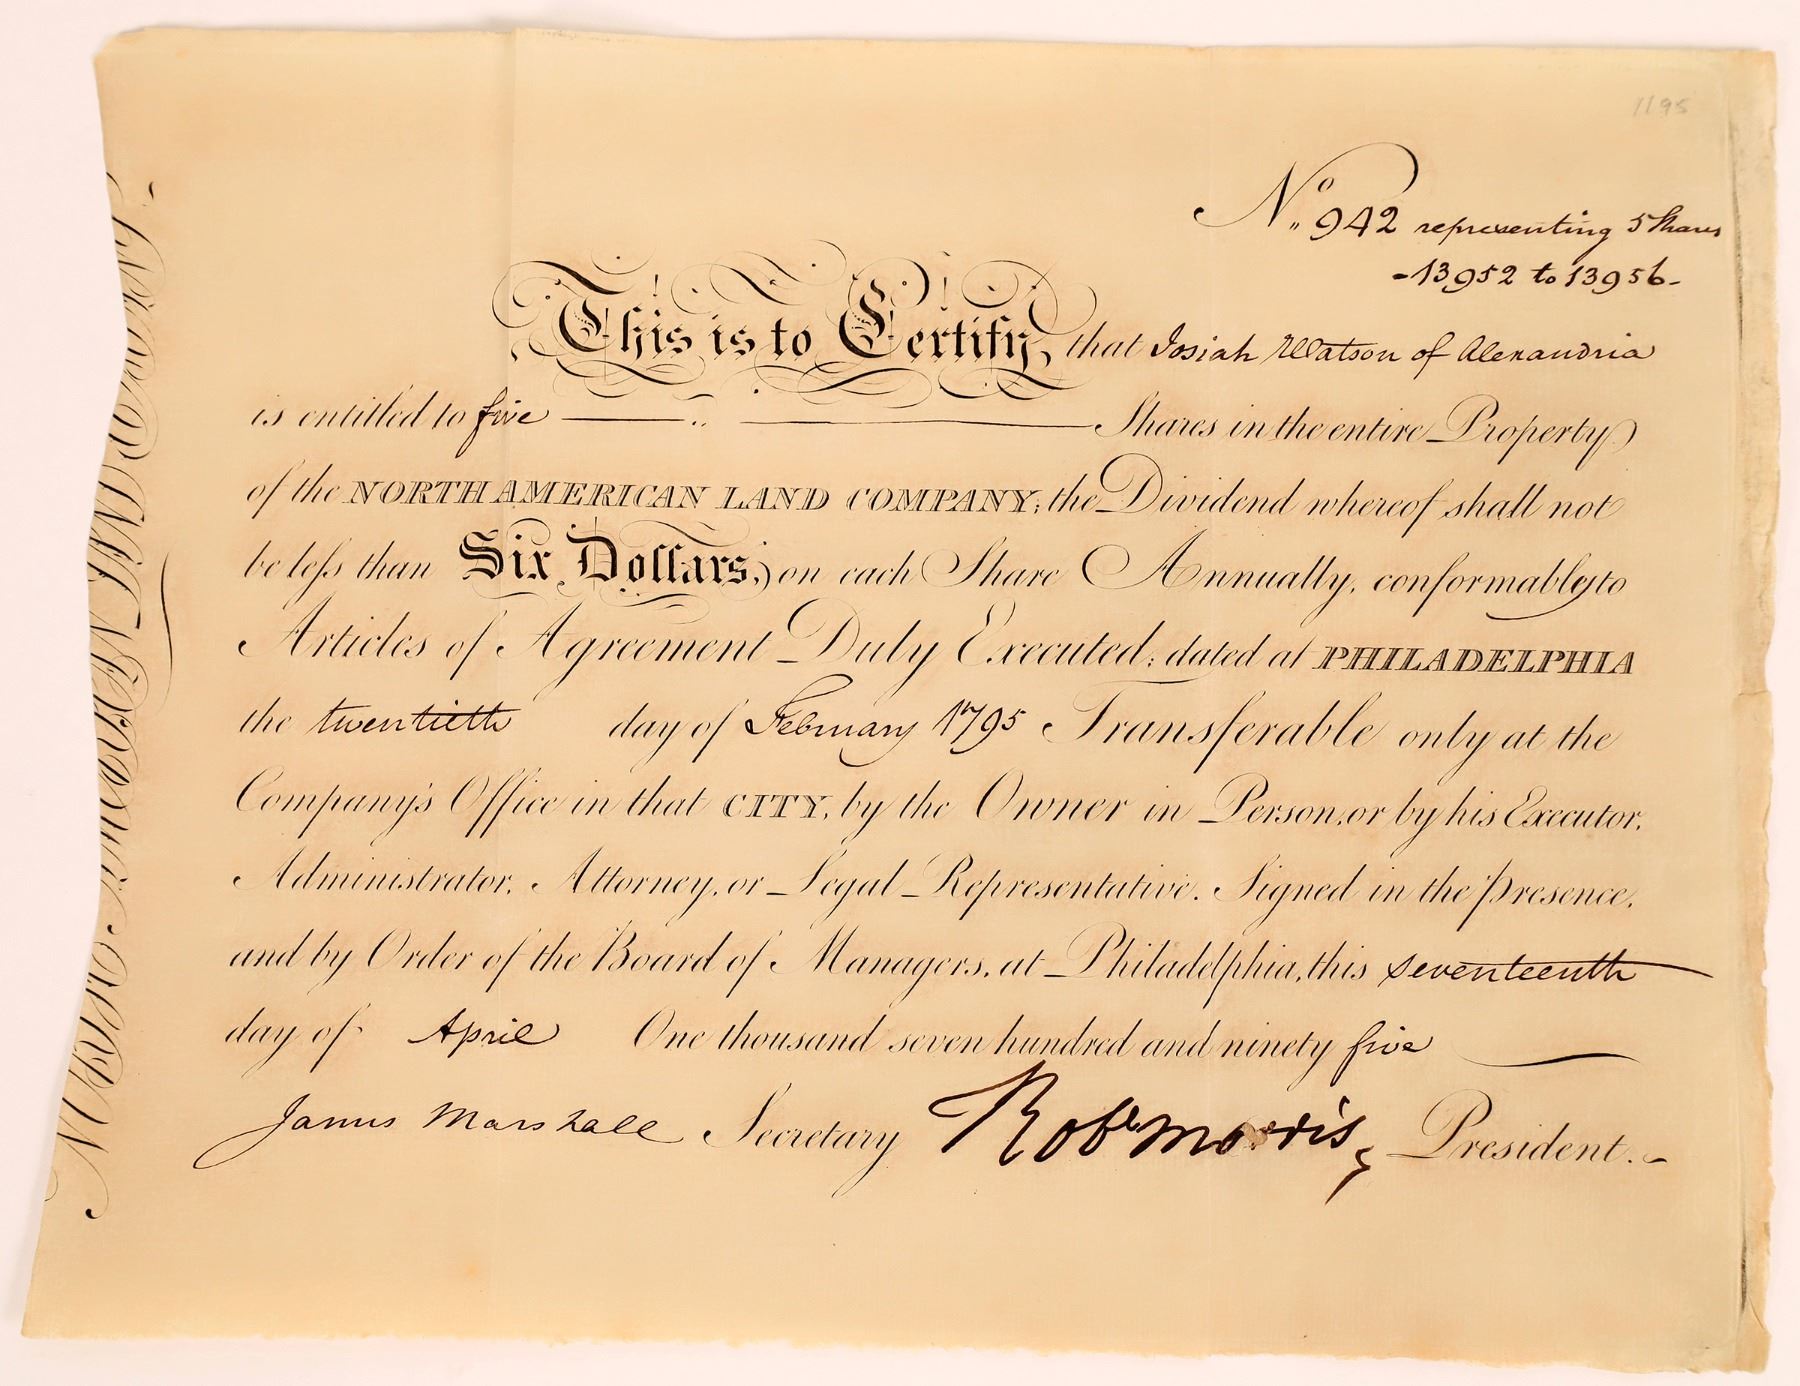 1195
No. 942 representing 5 Shares
-13952 to 13956-
This is to Certify, that Josiah Watson of Alexandria
is entitled to five Shares in the entire Property
of the NORTH AMERICAN LAND COMPANY; the Dividend whereof shall not
be less than Six Dollars, on each Share Annually, conformably to
Articles of Agreement Duly Executed; dated at PHILADELPHIA
the twentieth day of February 1795 Transferable only at the
Company's Office in that CITY, by the Owner in Person, or by his Executor,
Administrator, Attorney, or Legal Representative. Signed in the presence,
and by Order of the Board of Managers, at Philadelphia, this seventeenth
day of April One thousand seven hundred and ninety five
James Marshall Secretary Robt Morris President.